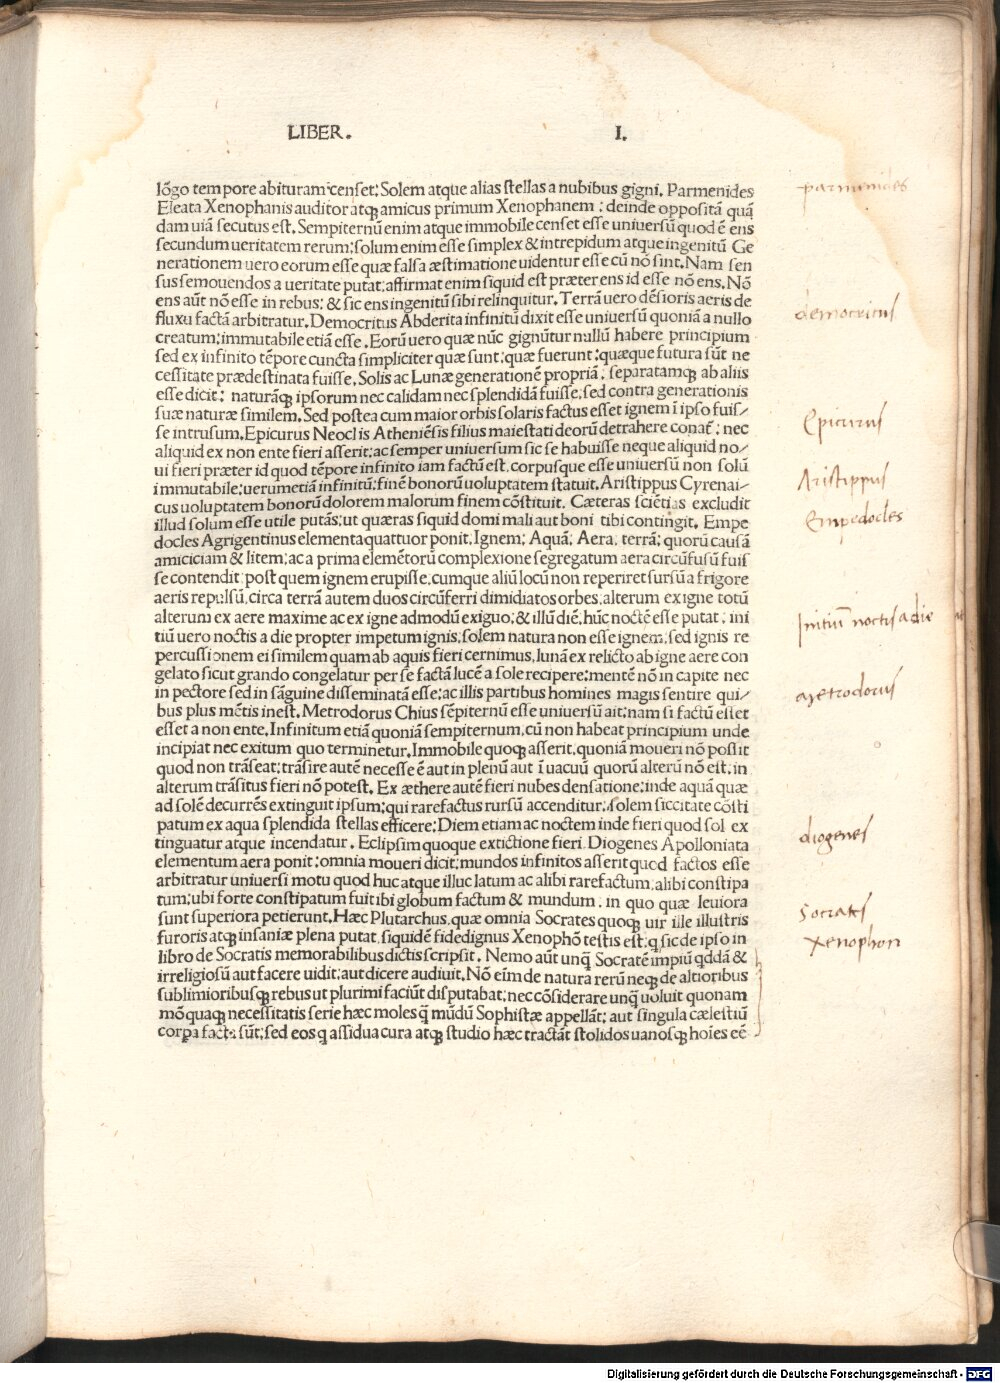 LIBER. I.
lõgo tempore abituram censet: Solem atque alias stellas a nubibus gigni. Parmenides
Eleata Xenophanis auditor atqꝫ amicus primum Xenophanem: deinde oppositã quã
dam uiã secutus est. Sempiternũ enim atque immobile censet esse uniuersũ quod ẽ ens
secundum ueritatem rerum: solum enim esse simplex & intrepidum atque ingenitũ Ge
nerationem uero eorum esse quæ falsa æstimatione uidentur esse cũ nõ sint. Nam sen
sus semouendos a ueritate putat: affirmat enim siquid est præter ens id esse nõ ens. Nõ
ens aũt nõ esse in rebus: & sic ens ingenitũ sibi relinquitur. Terrã uero dẽsioris aeris de
fluxu factã arbitratur. Democritus Abderita infinitũ dixit esse uniuersũ quoniã a nullo
creatum: immutabile etiã esse. Eorũ uero quæ nũc gignũtur nullũ habere principium
sed ex infinito tẽpore cuncta simpliciter quæ sunt: quæ fuerunt: quæque futura sũt ne
cessitate prædestinata fuisse. Solis ac Lunæ generationẽ propriã: separatamqꝫ ab aliis
esse dicit: naturãqꝫ ipsorum nec calidam nec splendidã fuisse, sed contra generationis
suæ naturæ similem. Sed postea cum maior orbis solaris factus esset ignem ĩ ipso fuis/
se intrusum. Epicurus Neoclis Atheniẽsis filius maiestati deorũ detrahere conat̃: nec
aliquid ex non ente fieri asserit: ac semper uniuersum sic se habuisse neque aliquid no/
ui fieri præter id quod tẽpore infinito iam factũ est. corpusque esse uniuersũ non solũ
immutabile: uerumetiã infinitũ: finẽ bonorũ uoluptatem statuit. Aristippus Cyrenai/
cus uoluptatem bonorũ dolorem malorum finem cõstituit. Cæteras sciẽtias excludit
illud solum esse utile putãs: ut quæras siquid domi mali aut boni tibi contingit. Empe
docles Agrigentinus elementa quattuor ponit. Ignem: Aquã: Aera, terrã: quorũ causã
amiciciam & litem: ac a prima elemẽtorũ complexione segregatum aera circũfusũ fuis
se contendit: post quem ignem erupisse, cumque aliũ locũ non reperiret sursũ a frigore
aeris repulsũ. circa terrã autem duos circũferri dimidiatos orbes, alterum ex igne totũ
alterum ex aere maxime ac ex igne admodũ exiguo: & illũ diẽ: hũc noctẽ esse putat: ini
tiũ uero noctis a die propter impetum ignis: solem natura non esse ignem: sed ignis re
percussionem ei similem quam ab aquis fieri cernimus, lunã ex relicto ab igne aere con
gelato sicut grando congelatur per se factã lucẽ a sole recipere: mentẽ nõ in capite nec
in pectore sed in sãguine disseminatã esse: ac illis partibus homines magis sentire qui/
bus plus mẽtis inest. Metrodorus Chius sẽpiternũ esse uniuersũ ait: nam si factũ esset
esset a non ente. Infinitum etiã quoniã sempiternum, cũ non habeat principium unde
incipiat nec exitum quo terminetur. Immobile quoqꝫ asserit, quoniã moueri nõ possit
quod non trãseat: trãsire autẽ necesse ẽ aut in plenũ aut ĩ uacuũ quorũ alterũ nõ est: in
alterum trãsitus fieri nõ potest. Ex æthere autẽ fieri nubes densatione: inde aquã quæ
ad solẽ decurrẽs extinguit ipsum: qui rarefactus rursũ accenditur: solem siccitate cõsti
patum ex aqua splendida stellas efficere: Diem etiam ac noctem inde fieri quod sol ex
tinguatur atque incendatur. Eclipsim quoque extictione fieri. Diogenes Apolloniata
elementum aera ponit: omnia moueri dicit: mundos infinitos asserit quod factos esse
arbitratur uniuersi motu quod huc atque illuc latum ac alibi rarefactum, alibi constipa
tum: ubi forte constipatum fuit ibi globum factum & mundum. in quo quæ leuiora
sunt superiora petierunt. Hæc Plutarchus. quæ omnia Socrates quoqꝫ uir ille illustris
furoris atqꝫ insaniæ plena putat, siquidẽ fidedignus Xenophõ testis est: q sic de ipso in
libro de Socratis memorabilibus dictis scripsit. Nemo aũt unq̃ Socratẽ impiũ qddã &
irreligiosũ aut facere uidit: aut dicere audiuit. Nõ eĩm de natura rerũ neqꝫ de altioribus
sublimioribusqꝫ rebus ut plurimi faciũt disputabat: nec cõsiderare unq̃ uoluit quonam
mõ quaqꝫ necessitatis serie hæc moles q̃ mũdũ Sophistæ appellãt: aut singula cælestiũ
corpa facta sũt: sed eos q assidua cura atqꝫ studio hæc tractãt stolidos uanosqꝫ hoĩes eẽ
parmenides
democritus
Epicurus
Aristippus
Empedocles
Initiũ noctis a die
Metrodorus
diogenes
Socrates
Xenophon
Digitalisierung gefördert durch die Deutsche Forschungsgemeinschaft - DFG